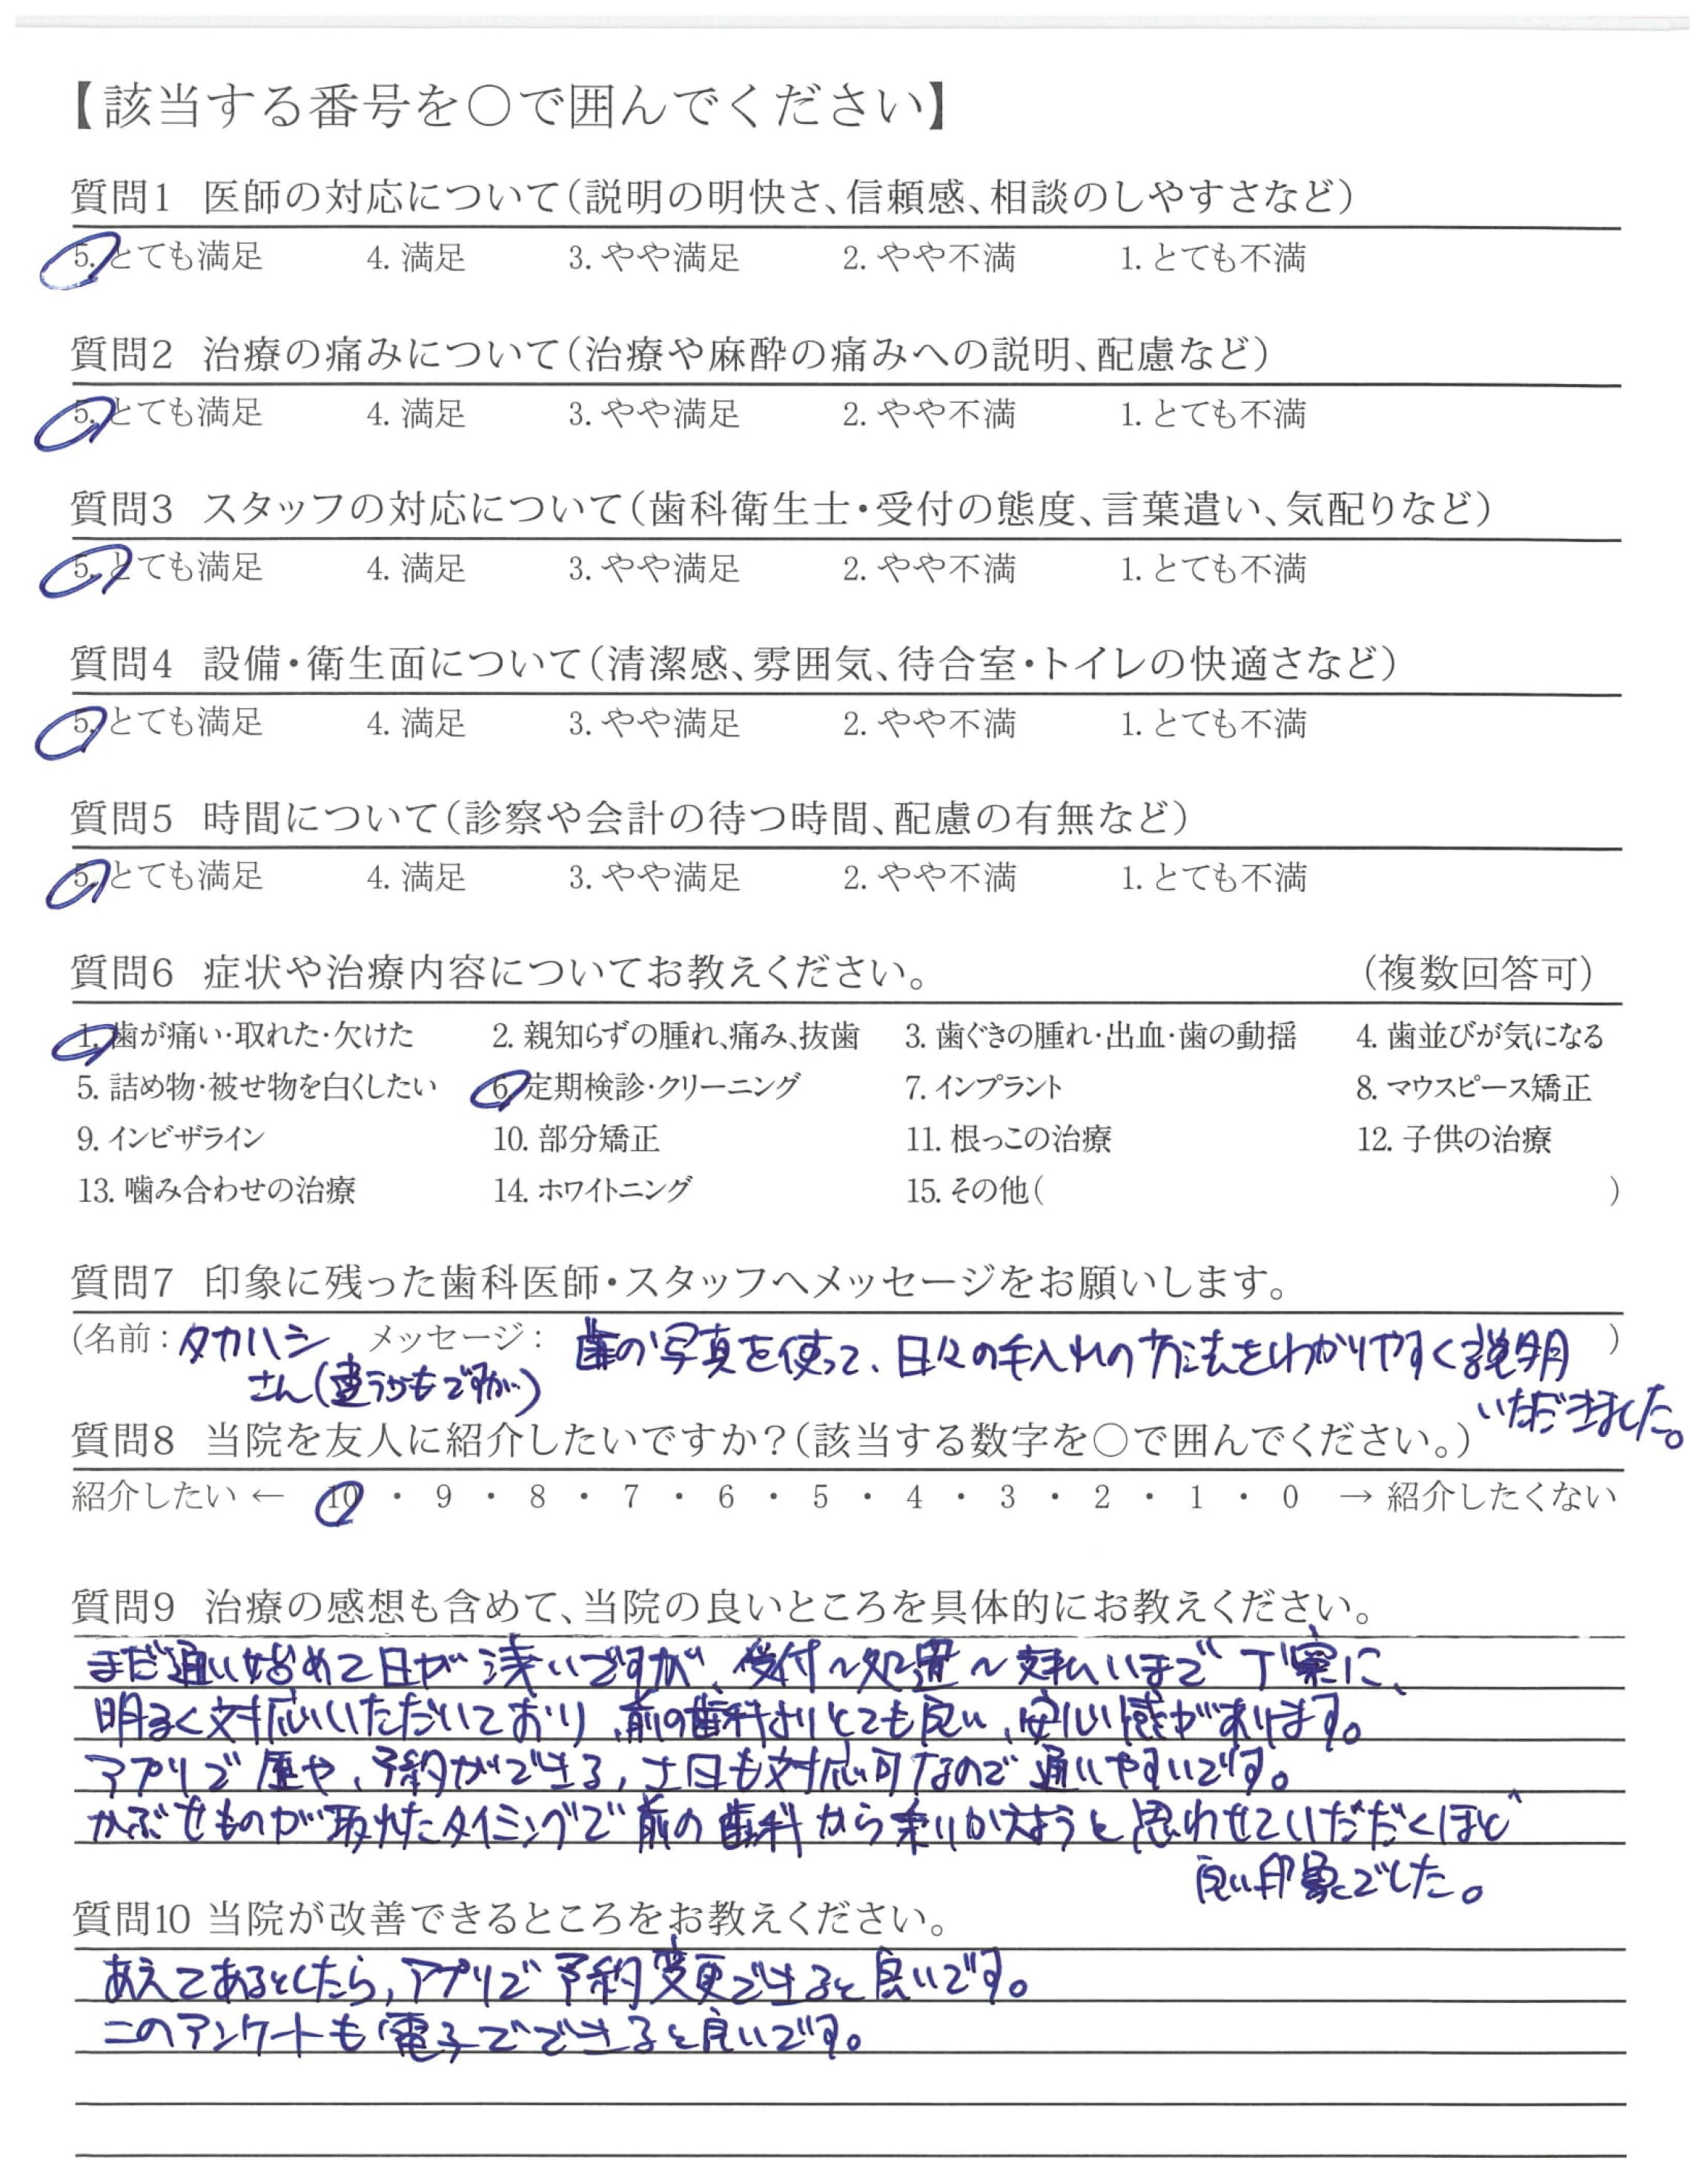 【該当する番号を○で囲んでください】
質問1 医師の対応について(説明の明快さ、信頼感、相談のしやすさなど)
5. とても満足 4. 満足 3. やや満足 2. やや不満 1. とても不満
質問2 治療の痛みについて(治療や麻酔の痛みへの説明、配慮など)
5. とても満足 4. 満足 3. やや満足 2. やや不満 1. とても不満
質問3 スタッフの対応について(歯科衛生士・受付の態度、言葉遣い、気配りなど)
5. とても満足 4. 満足 3. やや満足 2. やや不満 1. とても不満
質問4 設備・衛生面について(清潔感、雰囲気、待合室・トイレの快適さなど)
5. とても満足 4. 満足 3. やや満足 2. やや不満 1. とても不満
質問5 時間について(診察や会計の待つ時間、配慮の有無など)
5. とても満足 4. 満足 3. やや満足 2. やや不満 1. とても不満
質問6 症状や治療内容についてお教えください。 (複数回答可)
1. 歯が痛い・取れた・欠けた 2. 親知らずの腫れ、痛み、抜歯 3. 歯ぐきの腫れ・出血・歯の動揺 4. 歯並びが気になる
5. 詰め物・被せ物を白くしたい 6. 定期検診・クリーニング 7. インプラント 8. マウスピース矯正
9. インビザライン 10. 部分矯正 11. 根っこの治療 12. 子供の治療
13. 噛み合わせの治療 14. ホワイトニング 15. その他( )
質問7 印象に残った歯科医師・スタッフへメッセージをお願いします。
(名前: タカハシ メッセージ: 歯の写真を使って、日々の手入れの方法をわかりやすく説明 )
さん(違うかもですが…)
いただきました。
質問8 当院を友人に紹介したいですか?(該当する数字を○で囲んでください。)
紹介したい ← 10 ・ 9 ・ 8 ・ 7 ・ 6 ・ 5 ・ 4 ・ 3 ・ 2 ・ 1 ・ 0 → 紹介したくない
質問9 治療の感想も含めて、当院の良いところを具体的にお教えください。
まだ通い始めて日が浅いですが、受付〜処置〜支払いまで丁寧に、
明るく対応いただいており、前の歯科よりとても良い、安心感があります。
アプリで歴や、予約ができる、土日も対応可なので通いやすいです。
かぶせものが取れたタイミングで前の歯科から乗りかえようと思わせていだだくほど
良い印象でした。
質問10 当院が改善できるところをお教えください。
あえてあるとしたら、アプリで予約変更できると良いです。
このアンケートも電子でできると良いです。